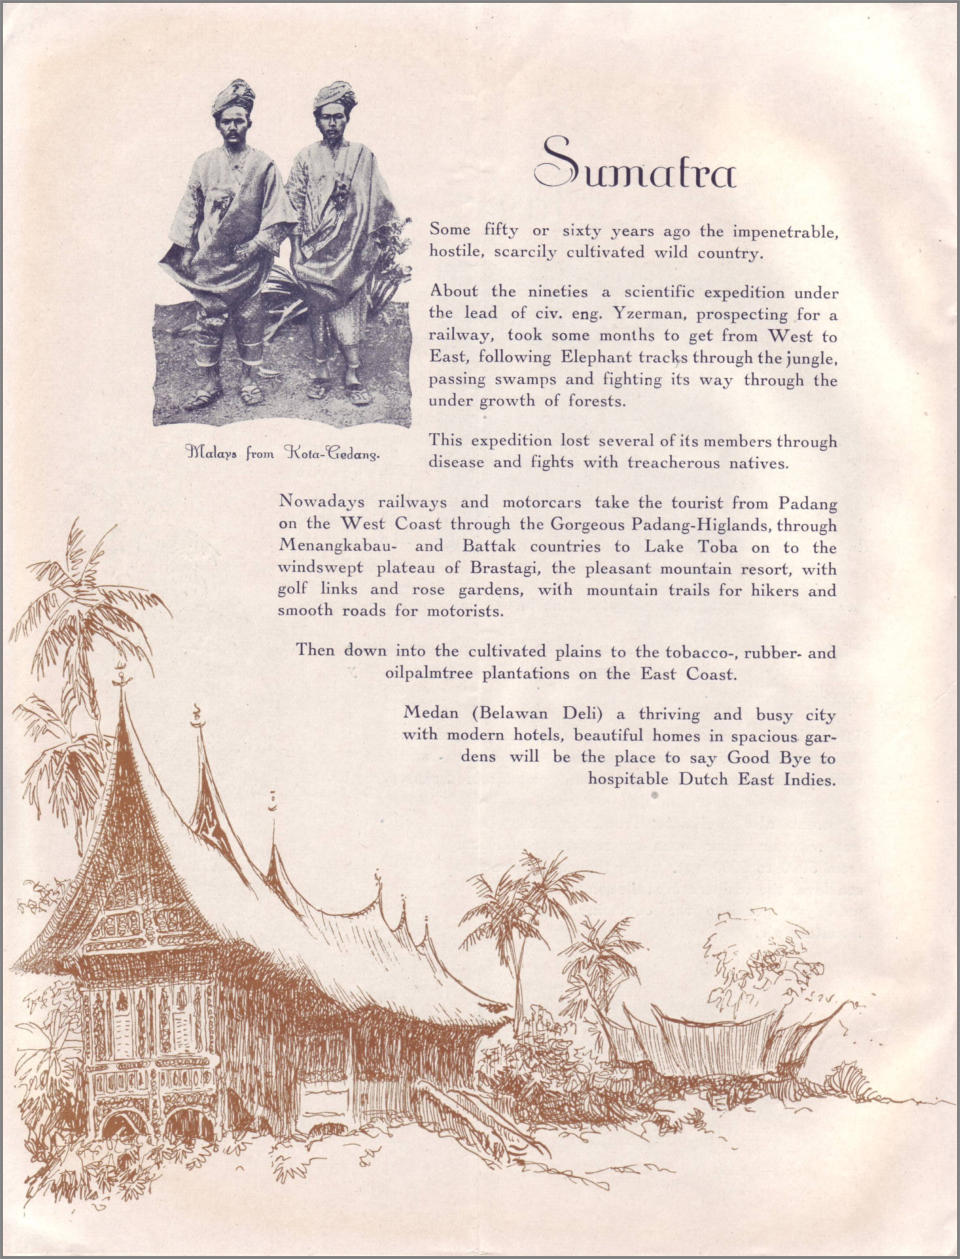 Sumatra
Some fifty or sixty years ago the impenetrable,
hostile, scarcily cultivated wild country.
About the nineties a scientific expedition under
the lead of civ. eng. Yzerman, prospecting for a
railway, took some months to get from West to
East, following Elephant tracks through the jungle,
passing swamps and fighting its way through the
under growth of forests.
This expedition lost several of its members through
disease and fights with treacherous natives.
Malays from Kota-Gedang.
Nowadays railways and motorcars take the tourist from Padang
on the West Coast through the Gorgeous Padang-Higlands, through
Menangkabau- and Battak countries to Lake Toba on to the
windswept plateau of Brastagi, the pleasant mountain resort, with
golf links and rose gardens, with mountain trails for hikers and
smooth roads for motorists.
Then down into the cultivated plains to the tobacco-, rubber- and
oilpalmtree plantations on the East Coast.
Medan (Belawan Deli) a thriving and busy city
with modern hotels, beautiful homes in spacious gar-
dens will be the place to say Good Bye to
hospitable Dutch East Indies.